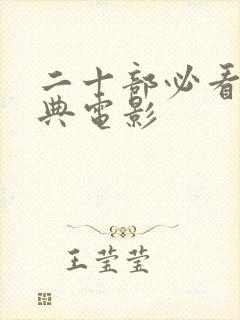 二十部必看
典电影
王莹莹